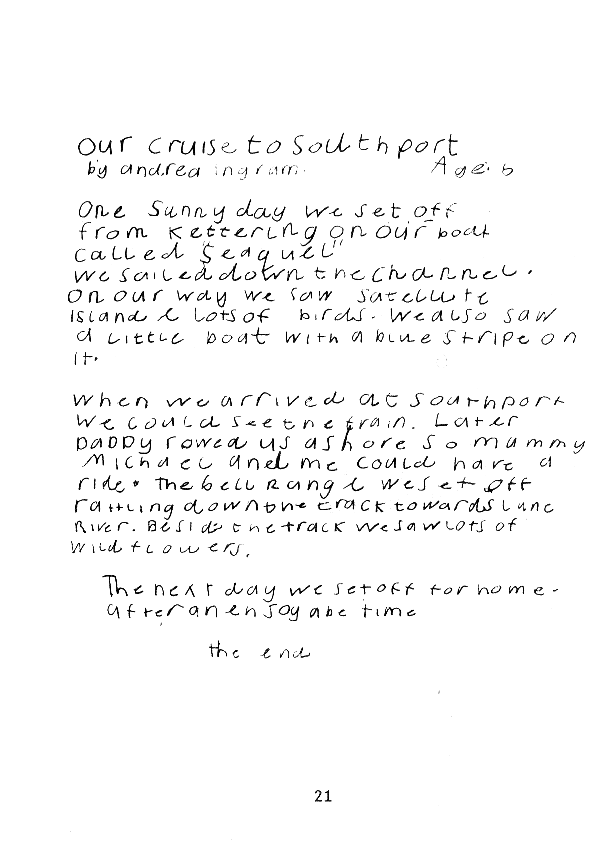 Our cruise to Southport
by andrea ingram. Age. 6
One Sunny day we set off
from Kettering on our boat
called "Seaquel"
we sailed down the channel.
On our way we saw satellite
island & lots of birds. We also saw
a little boat with a blue stripe on
it.
When we arrived at southport
we could see the train. Later
DADDY rowed us ashore so mummy
Michael and me could have a
ride. The bell Rang & we set off
rattling down the track towards Lune
River. Beside the track we saw lots of
wild flowers.
The next day we set off for home.
after an enjoyabe time
the end
21